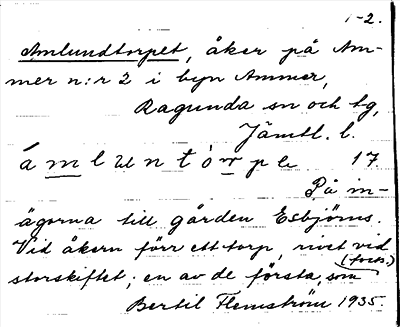 1-2.
Amlundtorpet, åker på Am-
mer n:r 2 i byn Ammer,
Ragunda sn och tg,
Jämtl. l.
á m l u n t ò r p e 17
På in-
ägorna till gården Esbjörns.
Vid åkern förr ett torp, rivet vid
storskiftet; en av de första, som
(forts.)
Bertil Flemström 1935.